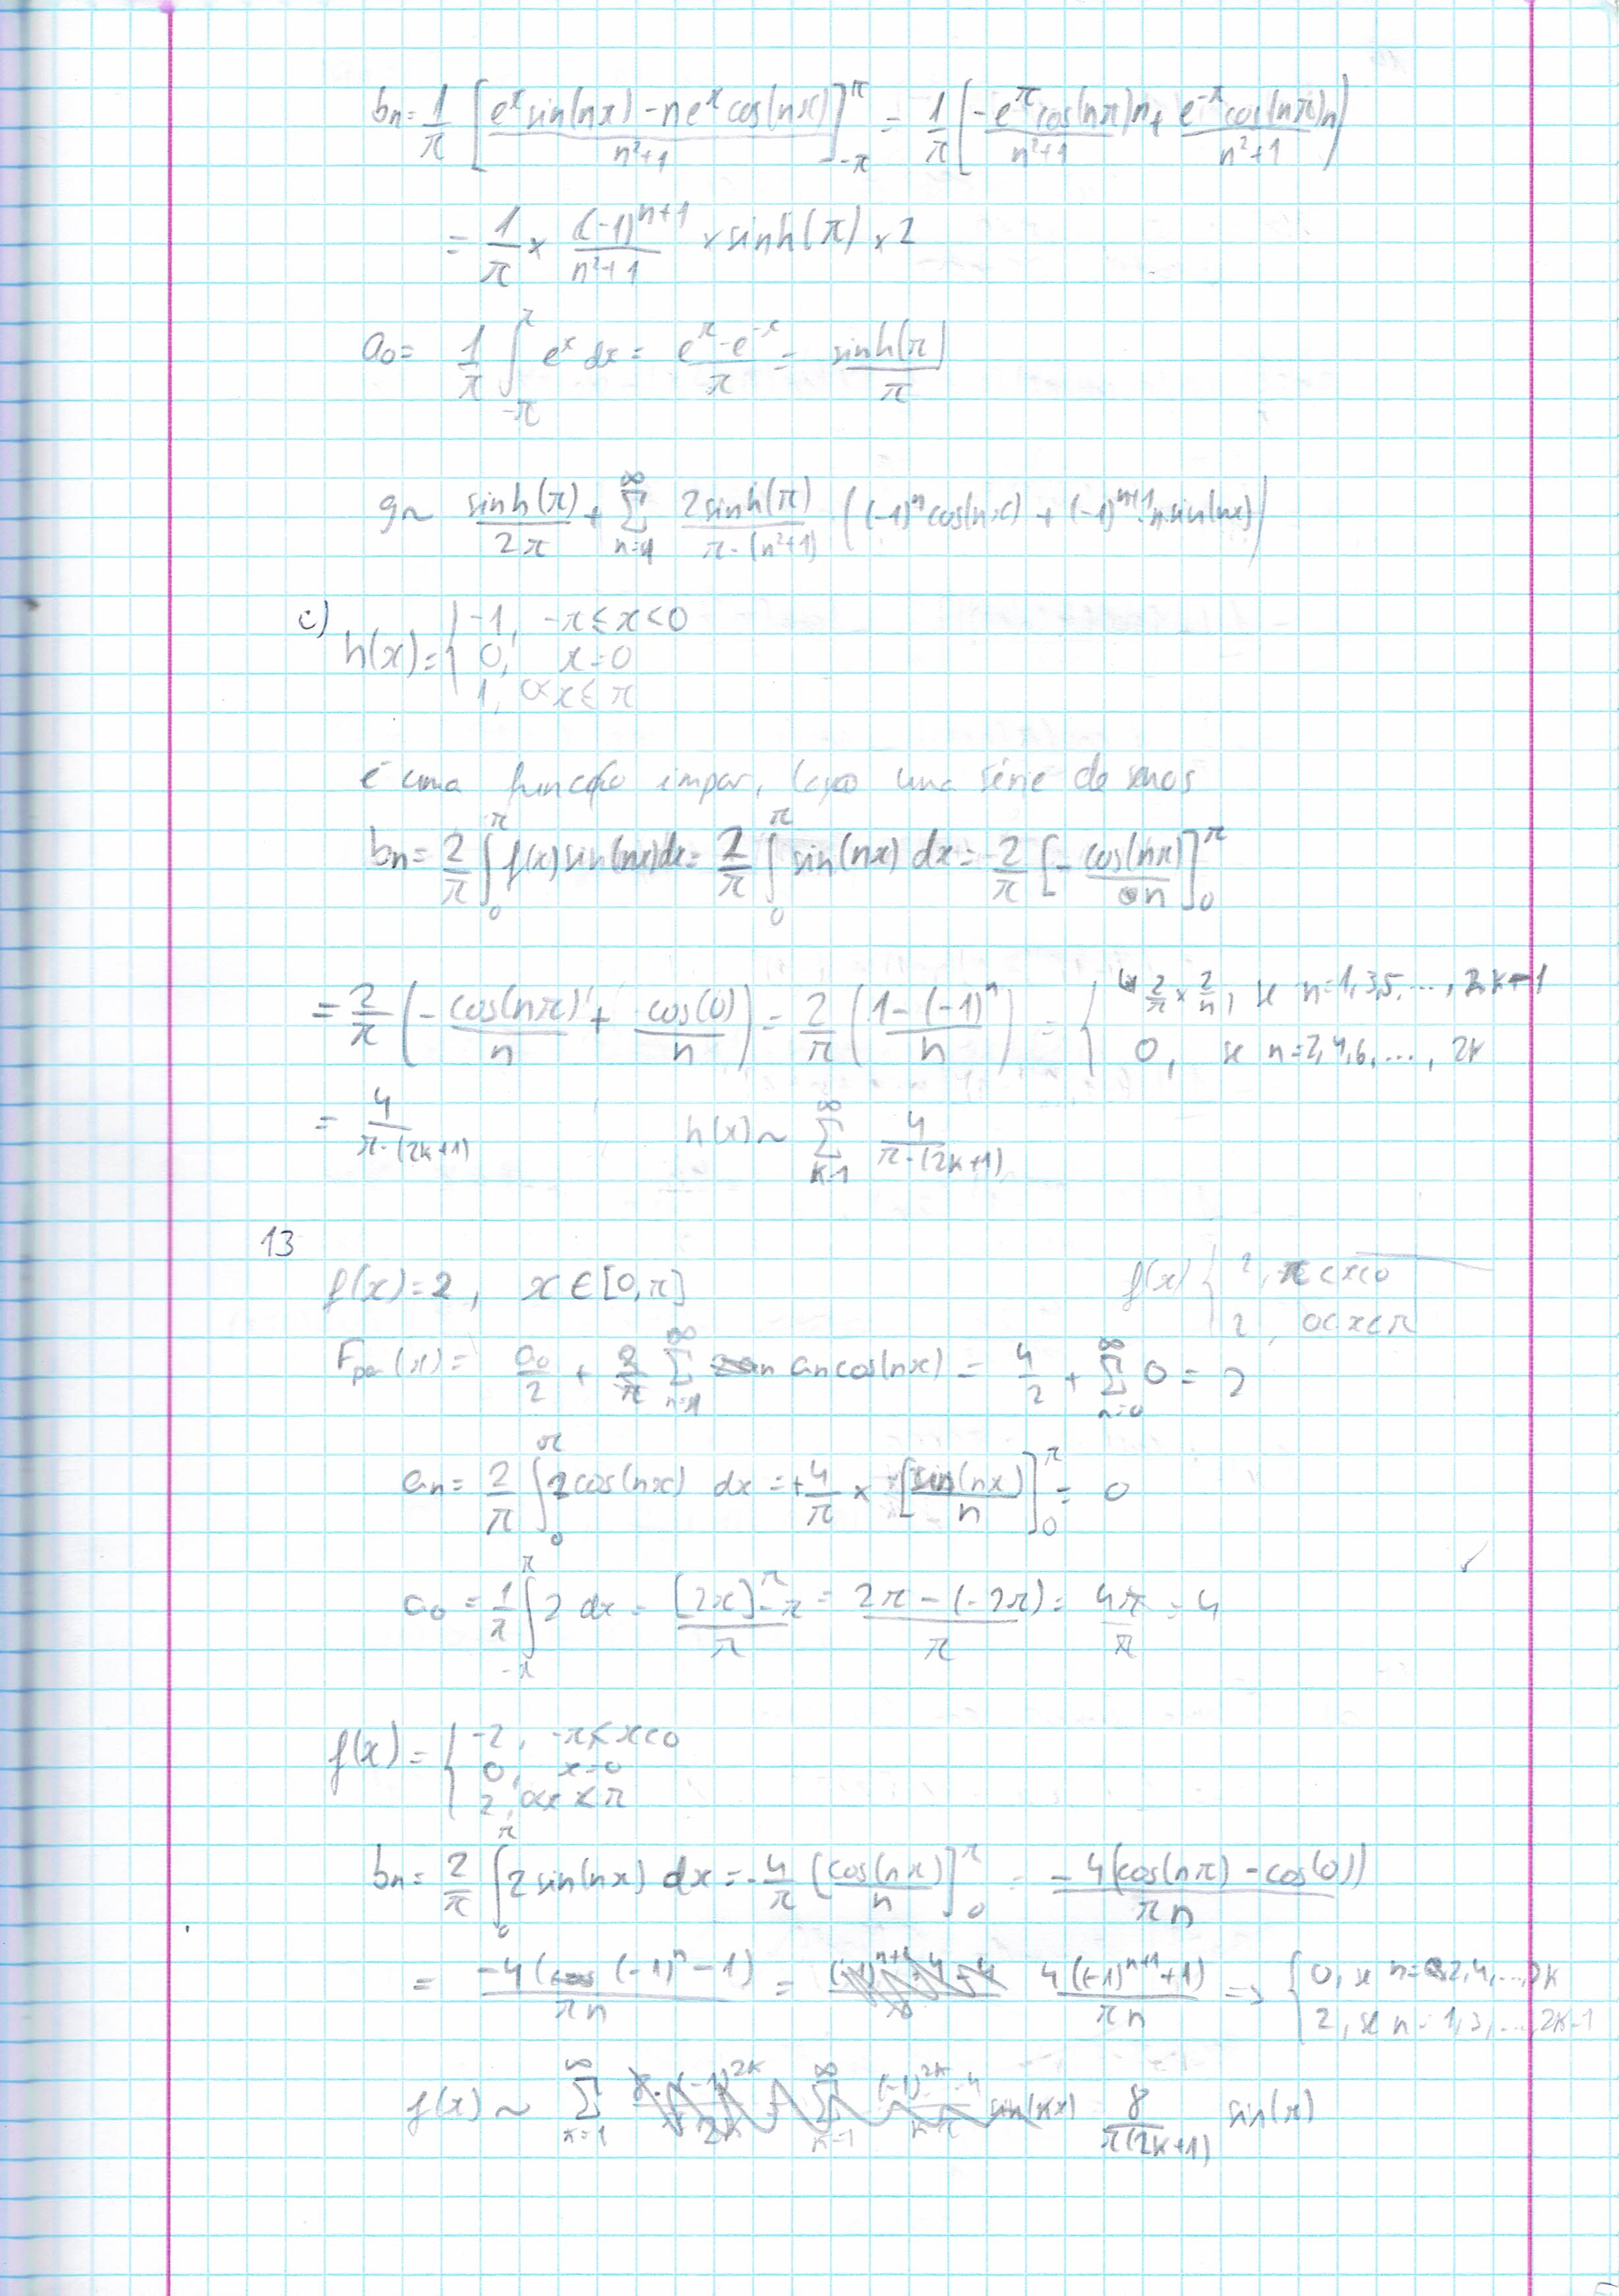 bn = 1/π [ (e^x sin(nx) - n e^x cos(nx)) / (n²+1) ]_{-π}^{π} = 1/π ( -e^π cos(nπ)n / (n²+1) + e^{-π} cos(nπ)n / (n²+1) )
= 1/π × (-1)^{n+1} / (n²+1) × sinh(π) × 2
a0 = 1/π ∫_{-π}^{π} e^x dx = (e^π - e^{-π}) / π = sinh(π) / π
g ~ sinh(π) / 2π + Σ_{n=1}^{∞} 2 sinh(π) / (π·(n²+1)) ((-1)^n cos(nx) + (-1)^{n+1}·n sin(nx))
c) h(x) = { -1, -π ≤ x < 0
0, x = 0
1, 0 < x ≤ π
é uma função impar, logo uma série de senos
bn = 2/π ∫_0^π f(x) sin(nx) dx = 2/π ∫_0^π sin(nx) dx = 2/π [ - cos(nx) / n ]_0^π
= 2/π ( - cos(nπ) / n + cos(0) / n ) = 2/π ( (1 - (-1)^n) / n ) = { 2/π × 2/n, se n = 1,3,5,..., 2k+1
0, se n = 2,4,6,..., 2k
= 4 / (π·(2k+1)) h(x) ~ Σ_{k=1}^{∞} 4 / (π·(2k+1))
13
f(x) = 2, x ∈ [0,π] f(x) { 2, -π < x < 0
2, 0 < x < π
F_par(x) = a0/2 + Σ_{n=1}^{∞} an cos(nx) = 4/2 + Σ_{n=0}^{∞} 0 = 2
an = 2/π ∫_0^π 2 cos(nx) dx = + 4/π × [ sin(nx) / n ]_0^π = 0
a0 = 1/π ∫_{-π}^{π} 2 dx = [2x]_{-π}^{π} / π = (2π - (-2π)) / π = 4π/π = 4
f(x) = { -2, -π < x < 0
0, x = 0
2, 0 < x < π
bn = 2/π ∫_0^π 2 sin(nx) dx = - 4/π [ cos(nx) / n ]_0^π = -4(cos(nπ) - cos(0)) / πn
= -4((-1)^n - 1) / πn = 4((-1)^{n+1} + 1) / πn => { 0, se n = 2,4,...,2k
2, se n = 1,3,...,2k-1
f(x) ~ Σ_{n=1}^{∞} 8 / (π(2k+1)) sin(x)